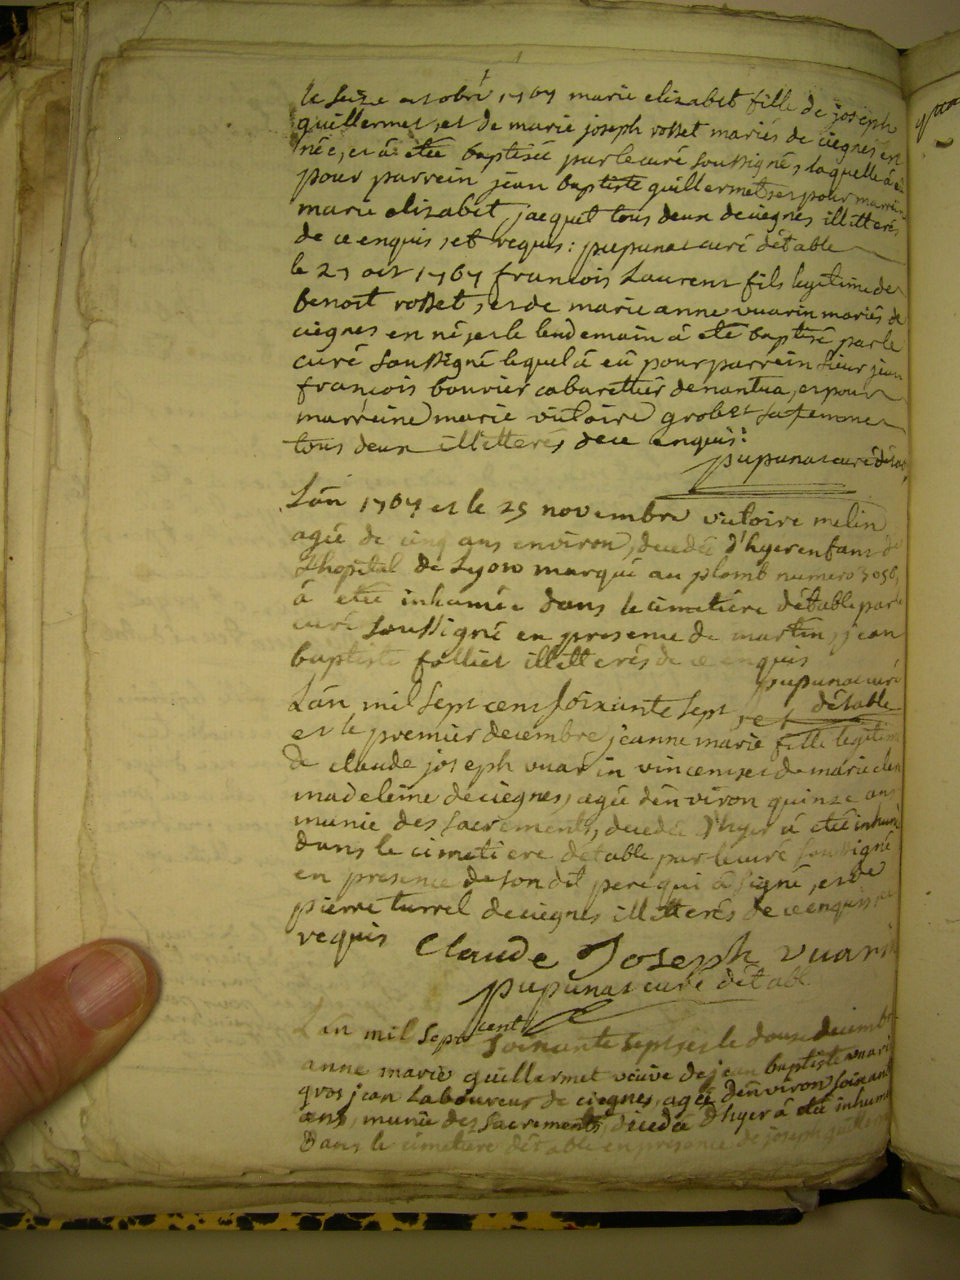 le seize octobre 1767 marie elizabet fille de joseph
guillermet, et de marie joseph rosset mariés de ciegnes est
née, et à etée baptisée par le curé soussigné, laquelle à eu
pour parrein jean baptiste guillermet, et pour marrei
marie elizabet jacquet tous deux de ciegnes illitterés
de ce enquis, et requis: pupunat curé détable
le 27 oct 1767 francois Laurent fils legitime de
benoit rosset, et de marie anne vuarin mariés de
ciegnes en né, et le lendemain à eté baptisé par le
curé soussigné lequel à eü pour parrein sieur jean
francois bouvier cabarettier de nantua, et pour
marreine marie victoire grobet sa femme
tous deux illitterés de ce enquis:
pupunat curé détab
Lán 1767 et le 25 novembre victoire melin
agée de cinq ans environ, decedée d'hyer enfant de
L'hopital de Lyon marqué au plomb numero 3050,
à etée inhumée dans le cimetiére détable par le
curé soussigné en presence de martin, jean
baptiste follliet illitterés de ce enquis
pupunat curé
détable
Lán mil sept cent soixante sept
et le premier decembre jeanne marie fille legitime
de claude joseph vuarin vincent, et de marie
madeleine de ciegnes, agée dénviron quinze ans
munie des sacrements, decedée d'hyer à etée inhum
dans le cimetiere détable par le curé soussigné
en presence de son dit pere qui à signé, et de
pierre turrel de ciegnes illitterés de ce enquis et
requis Claude Joseph vuari
pupunat curé détabl
Lán mil sept cent soixante sept, et le douze decembre
anne marie guillermet veuve de jean baptiste vuari
gros jean Laboureur de ciegnes, agée dénviron soixant
ans, munie des sacrements, decedée d'hyer à etée inhum
Dans le cimetiére détable en presence de joseph guillerm